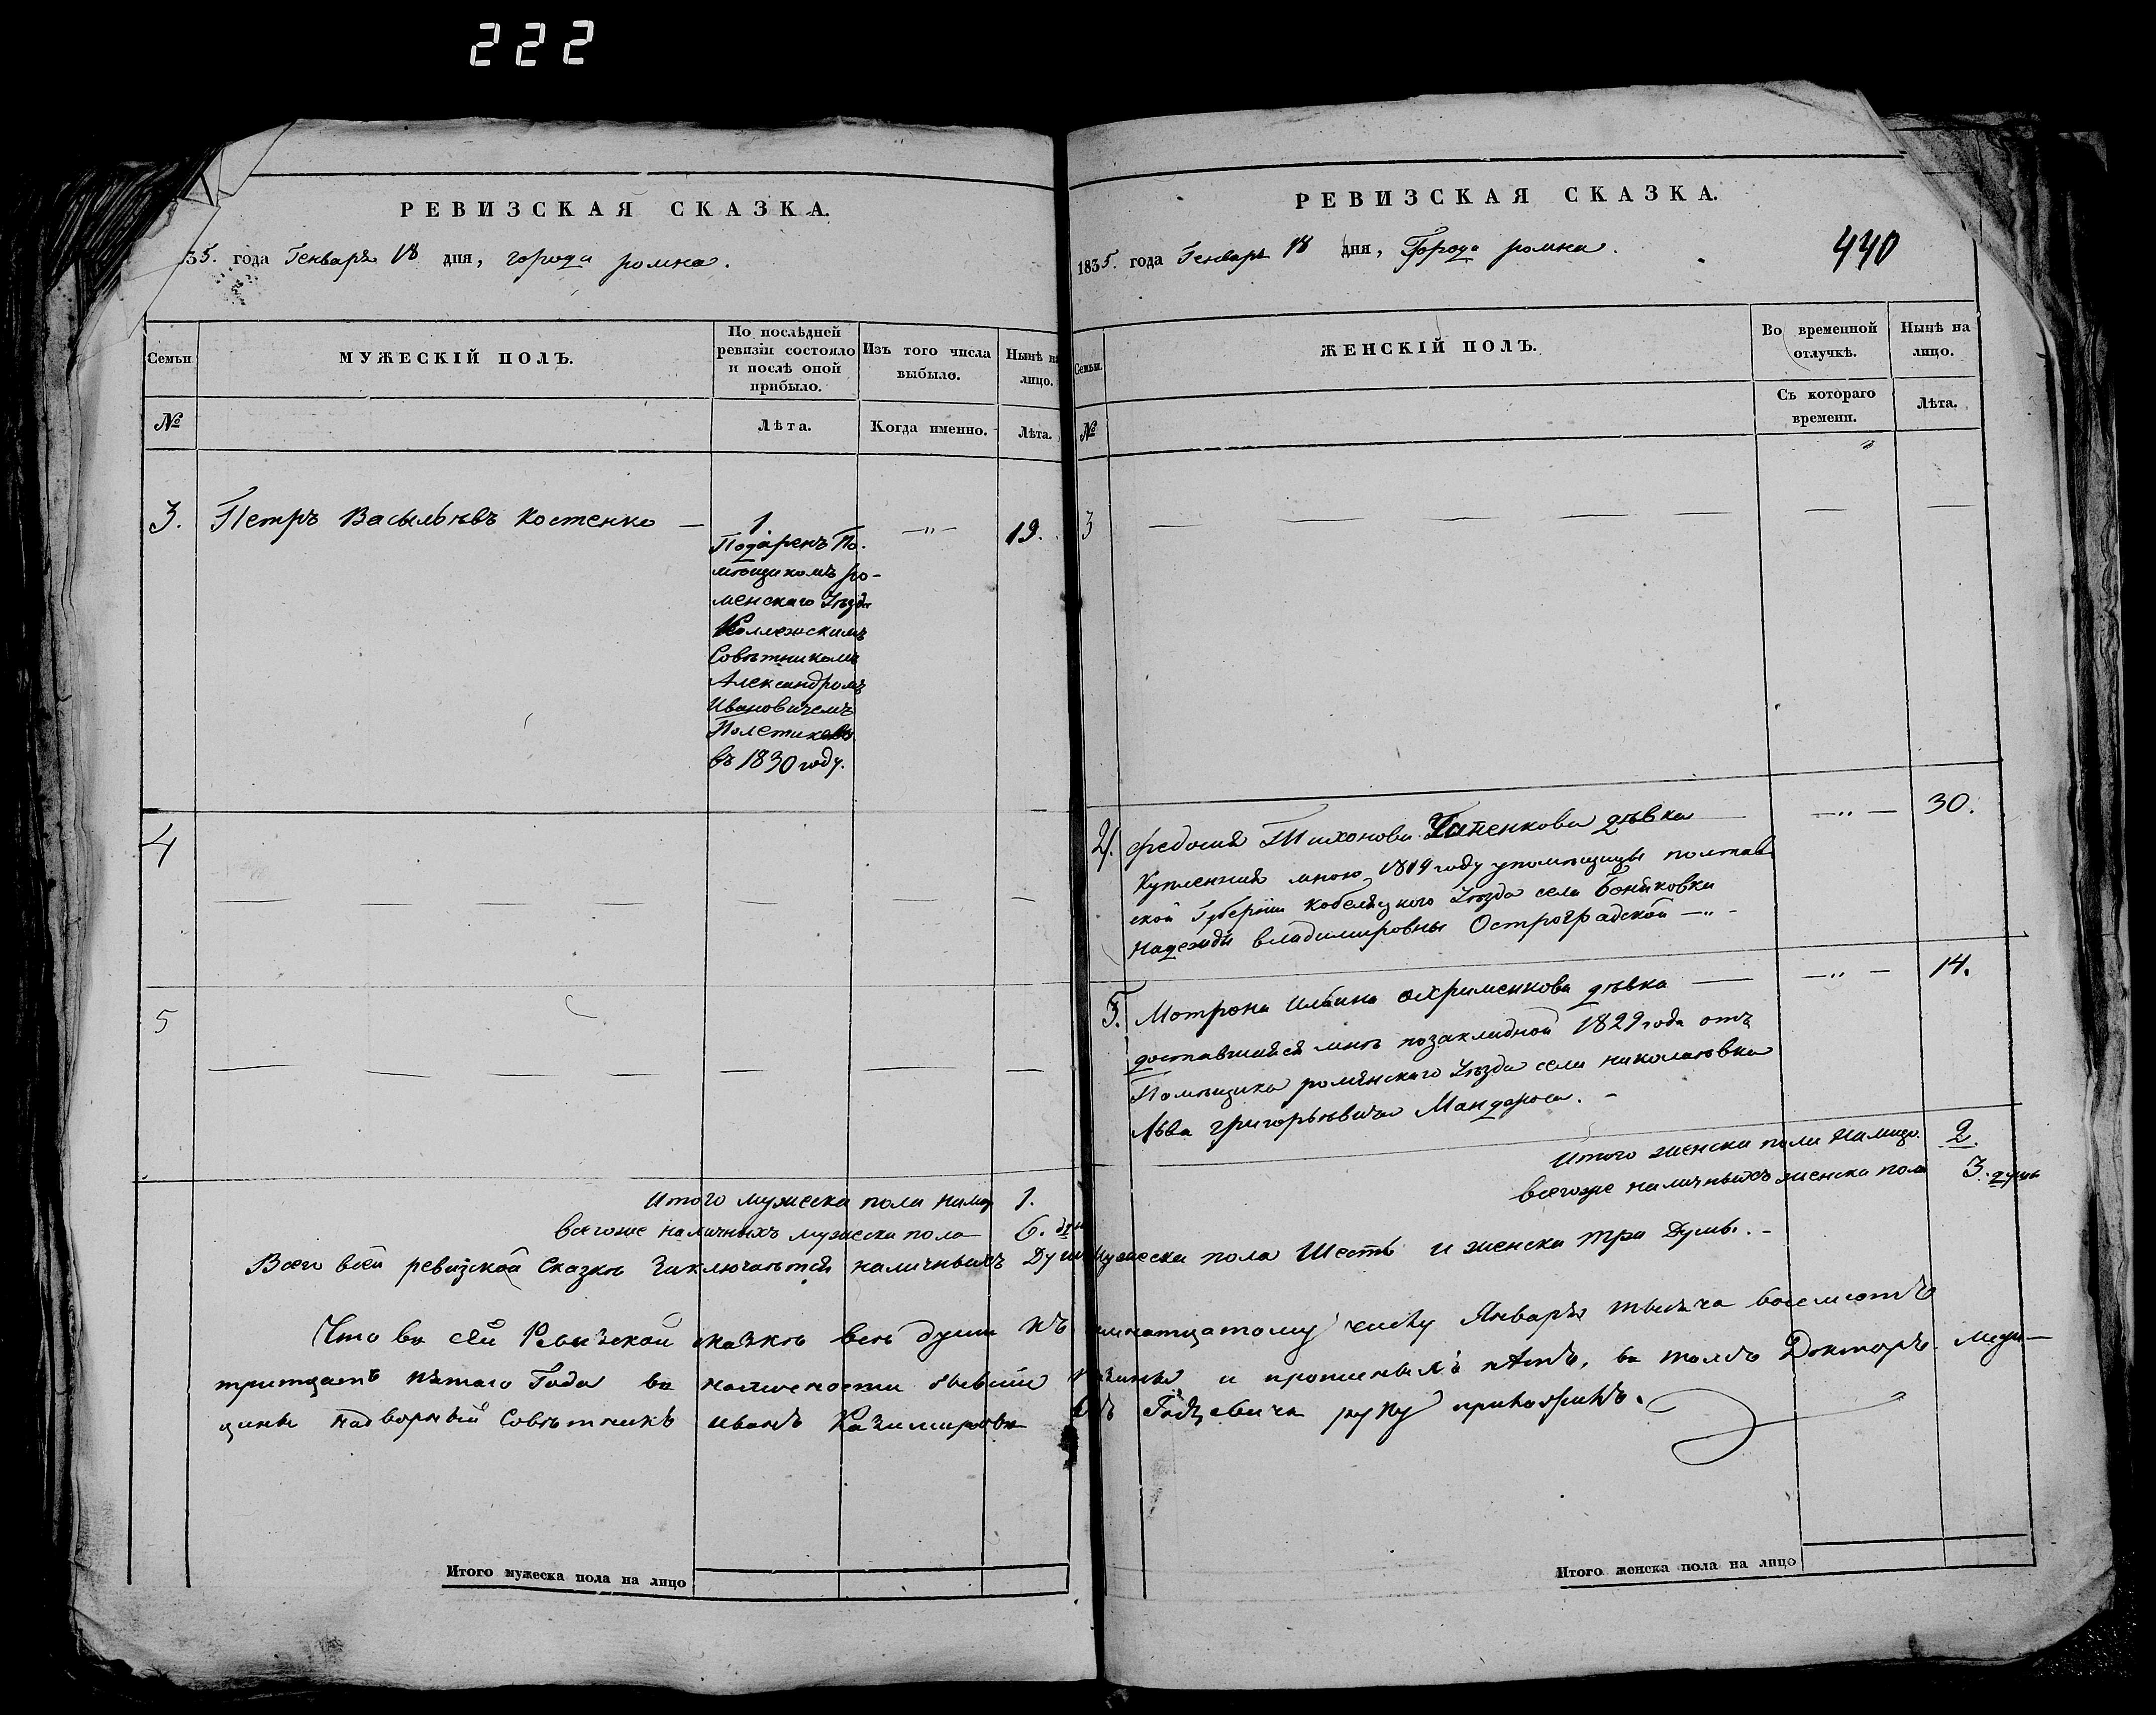 222
РЕВИЗСКАЯ СКАЗКА.
35. года Генваря 18 дня, города ромна.
Семьи
МУЖЕСКІЙ ПОЛЪ.
По послѣдней ревизіи состояло и послѣ оной прибыло.
Изъ того числа выбыло.
Нынѣ на лицо.
№
Лѣта.
Когда именно.
Лѣта.
3. Петръ Васыльѣвъ Костенко — 1. —"— 19.
Подаренъ По-
мѣщикомъ ро-
менскаго Уѣзда
Коллежскимъ
Совѣтникомъ
Александромъ
Ивановичемъ
Полетикою
въ 1830 году.
4
5
Итого мужеска пола на лицо 1.
всегоже наличныхъ мужеска пола 6. душ
РЕВИЗСКАЯ СКАЗКА.
1835. года Генваря 18 дня, Города ромна.
440
Семьи.
ЖЕНСКІЙ ПОЛЪ.
Во временной отлучкѣ.
Нынѣ на лицо.
№
Съ котораго времени.
Лѣта.
3
4. Федосия Тихонова дѣвка —"— 30.
Купленная мною 1819 году упомѣщицы полтав
ской Губерніи кобеляцкого Уѣзда села
Надежды владимировны Остроградской —"—
5. Мотрона Ильина Охрименкова дѣвка —"— 14.
доставшаяся мнѣ позакладной 1829 года отъ
Помѣщика роменскаго Уѣзда села николаювки
Лѣва григорьѣвича Мандероса.
Итого женска пола налицо. 2.
всегоже наличныхъ женска пола 3. душъ
Всего всей ревизской Сказкѣ Заключаѣтся наличныхъ Душъ Мужеска пола Шесть и женска три Душы.
Что во сей Ревизской сказкѣ всѣ души къ числу Января тысяча восемсотъ
тритцать пятаго Года въ наличности бывшіе и прописныхъ нѣтъ, въ томъ Докторъ Меди-
цины надворный Совѣтникъ иванъ Казимировъ руку приложилъ.
Итого мужеска пола на лицо
Итого женска пола на лицо